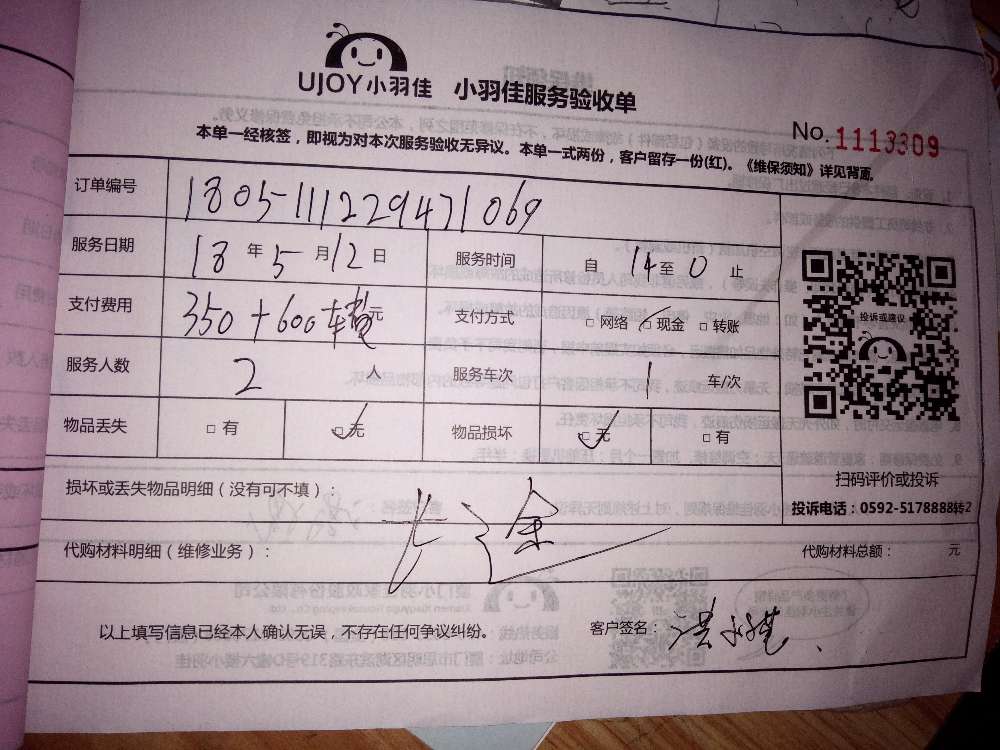 UJOY小羽佳 小羽佳服务验收单
No.1113309
本单一经核签，即视为对本次服务验收无异议。本单一式两份，客户留存一份(红)。《维保须知》详见背面。
订单编号 1805-111229471069
服务日期 18年5月12日 服务时间 自14至0止
支付费用 350+600车费元 支付方式 □网络 ☑现金 □转账
投诉或建议
服务人数 2人 服务车次 1车/次
物品丢失 □有 ☑无 物品损坏 ☑无 □有
扫码评价或投诉
损坏或丢失物品明细（没有可不填）：
投诉电话：0592-5178888转2
长途
代购材料明细（维修业务）： 代购材料总额： 元
以上填写信息已经本人确认无误，不存在任何争议纠纷。 客户签名：